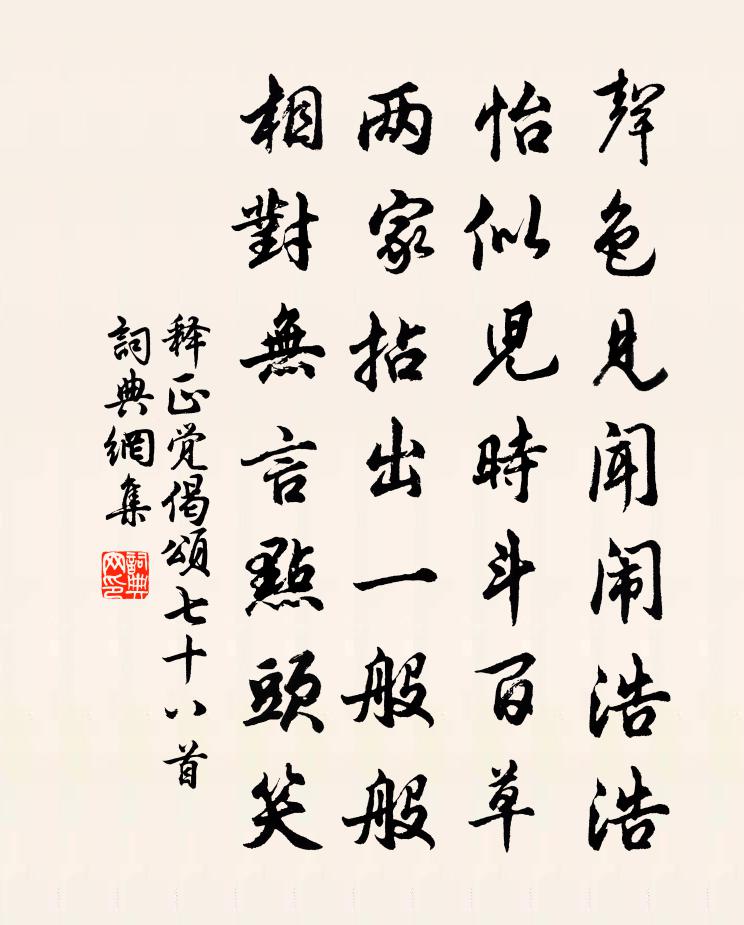 聲色見闻闹浩浩
怡似児時斗百草
两家拈出一般般
相對無言點頭笑
释正觉偈頌七十八首
詞典網集
詞典
网印